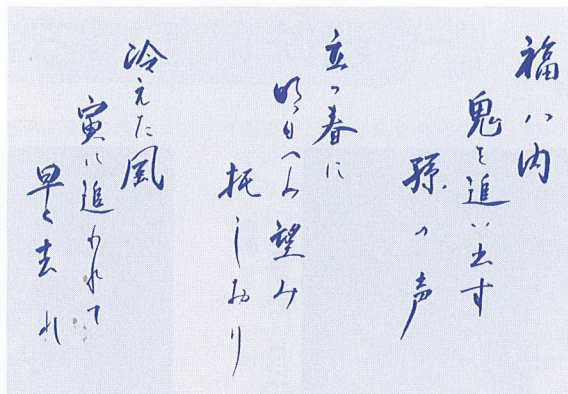 福ハ内
鬼を追い出す
孫の声
立つ春に
明日への望み
托しおり
冷えた風
寅に追われて
早く去れ